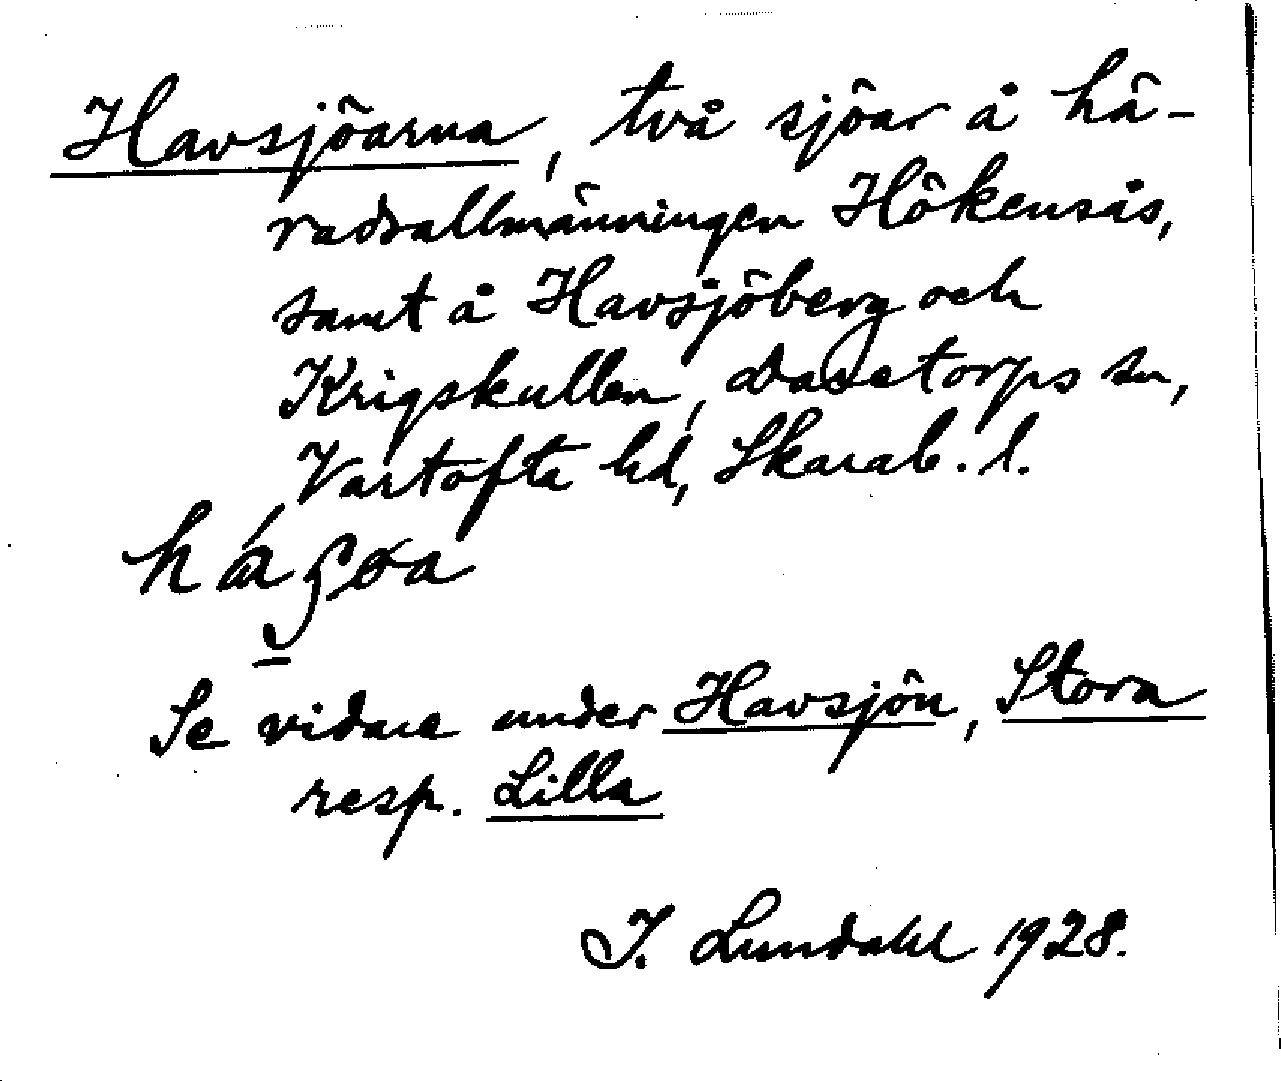 Havsjöarna, två sjöar å hä-
radsallmänningen Hökensås,
samt å Havsjöberg och
Krigskullen, Daretorps sn,
Vartofta hd, Skarab. l.
Se vidare under Havsjön, Stora
resp. Lilla
I. Lundahl 1928.